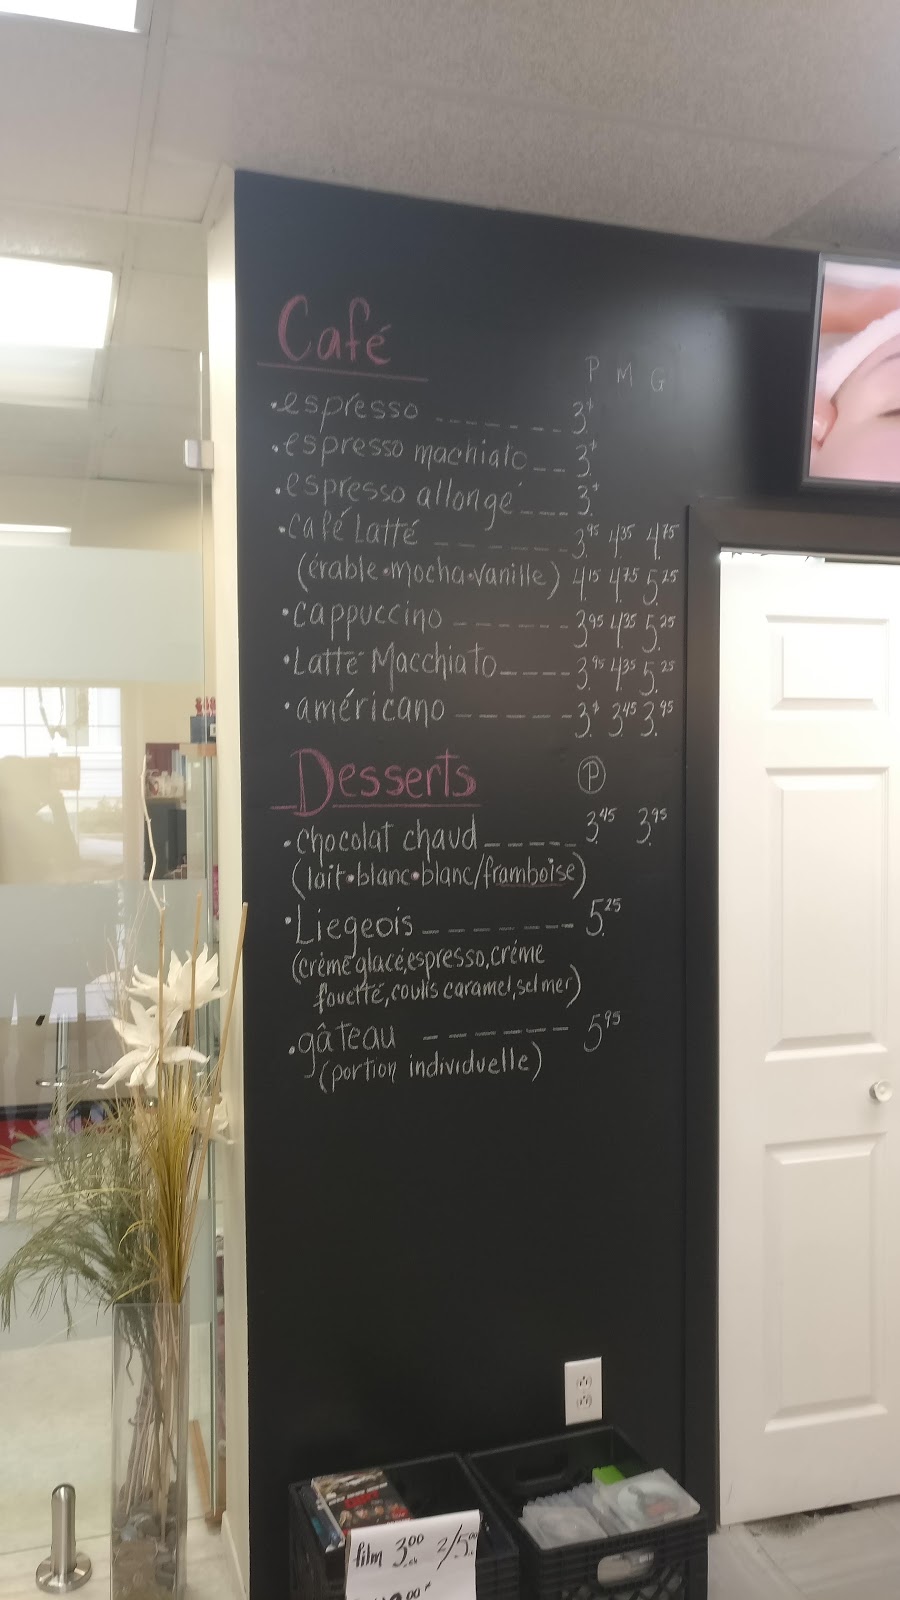 Café
P M G
•espresso _ _ _ _ _ _ _ 3.$
•espresso machiato _ _ 3.$
•espresso allongé _ _ _ 3.$
•café Latté _ _ _ _ _ _ _ 3.95 4.35 4.75
(érable•mocha•vanille) 4.15 4.75 5.25
•cappuccino _ _ _ _ _ _ 3.95 4.35 5.25
•Latté Macchiato _ _ _ _ 3.95 4.35 5.25
•américano _ _ _ _ _ _ 3.$ 3.45 3.95
Desserts P
•chocolat chaud _ _ _ _ _ 3.45 3.95
(lait•blanc•blanc/framboise)
•Liegeois _ _ _ _ _ _ _ 5.25
(crème glacé,espresso,créme
fouetté,coulis caramel,sel mer)
•gâteau _ _ _ _ _ _ 5.95
(portion individuelle)
film 3.00 ch 2/5.00